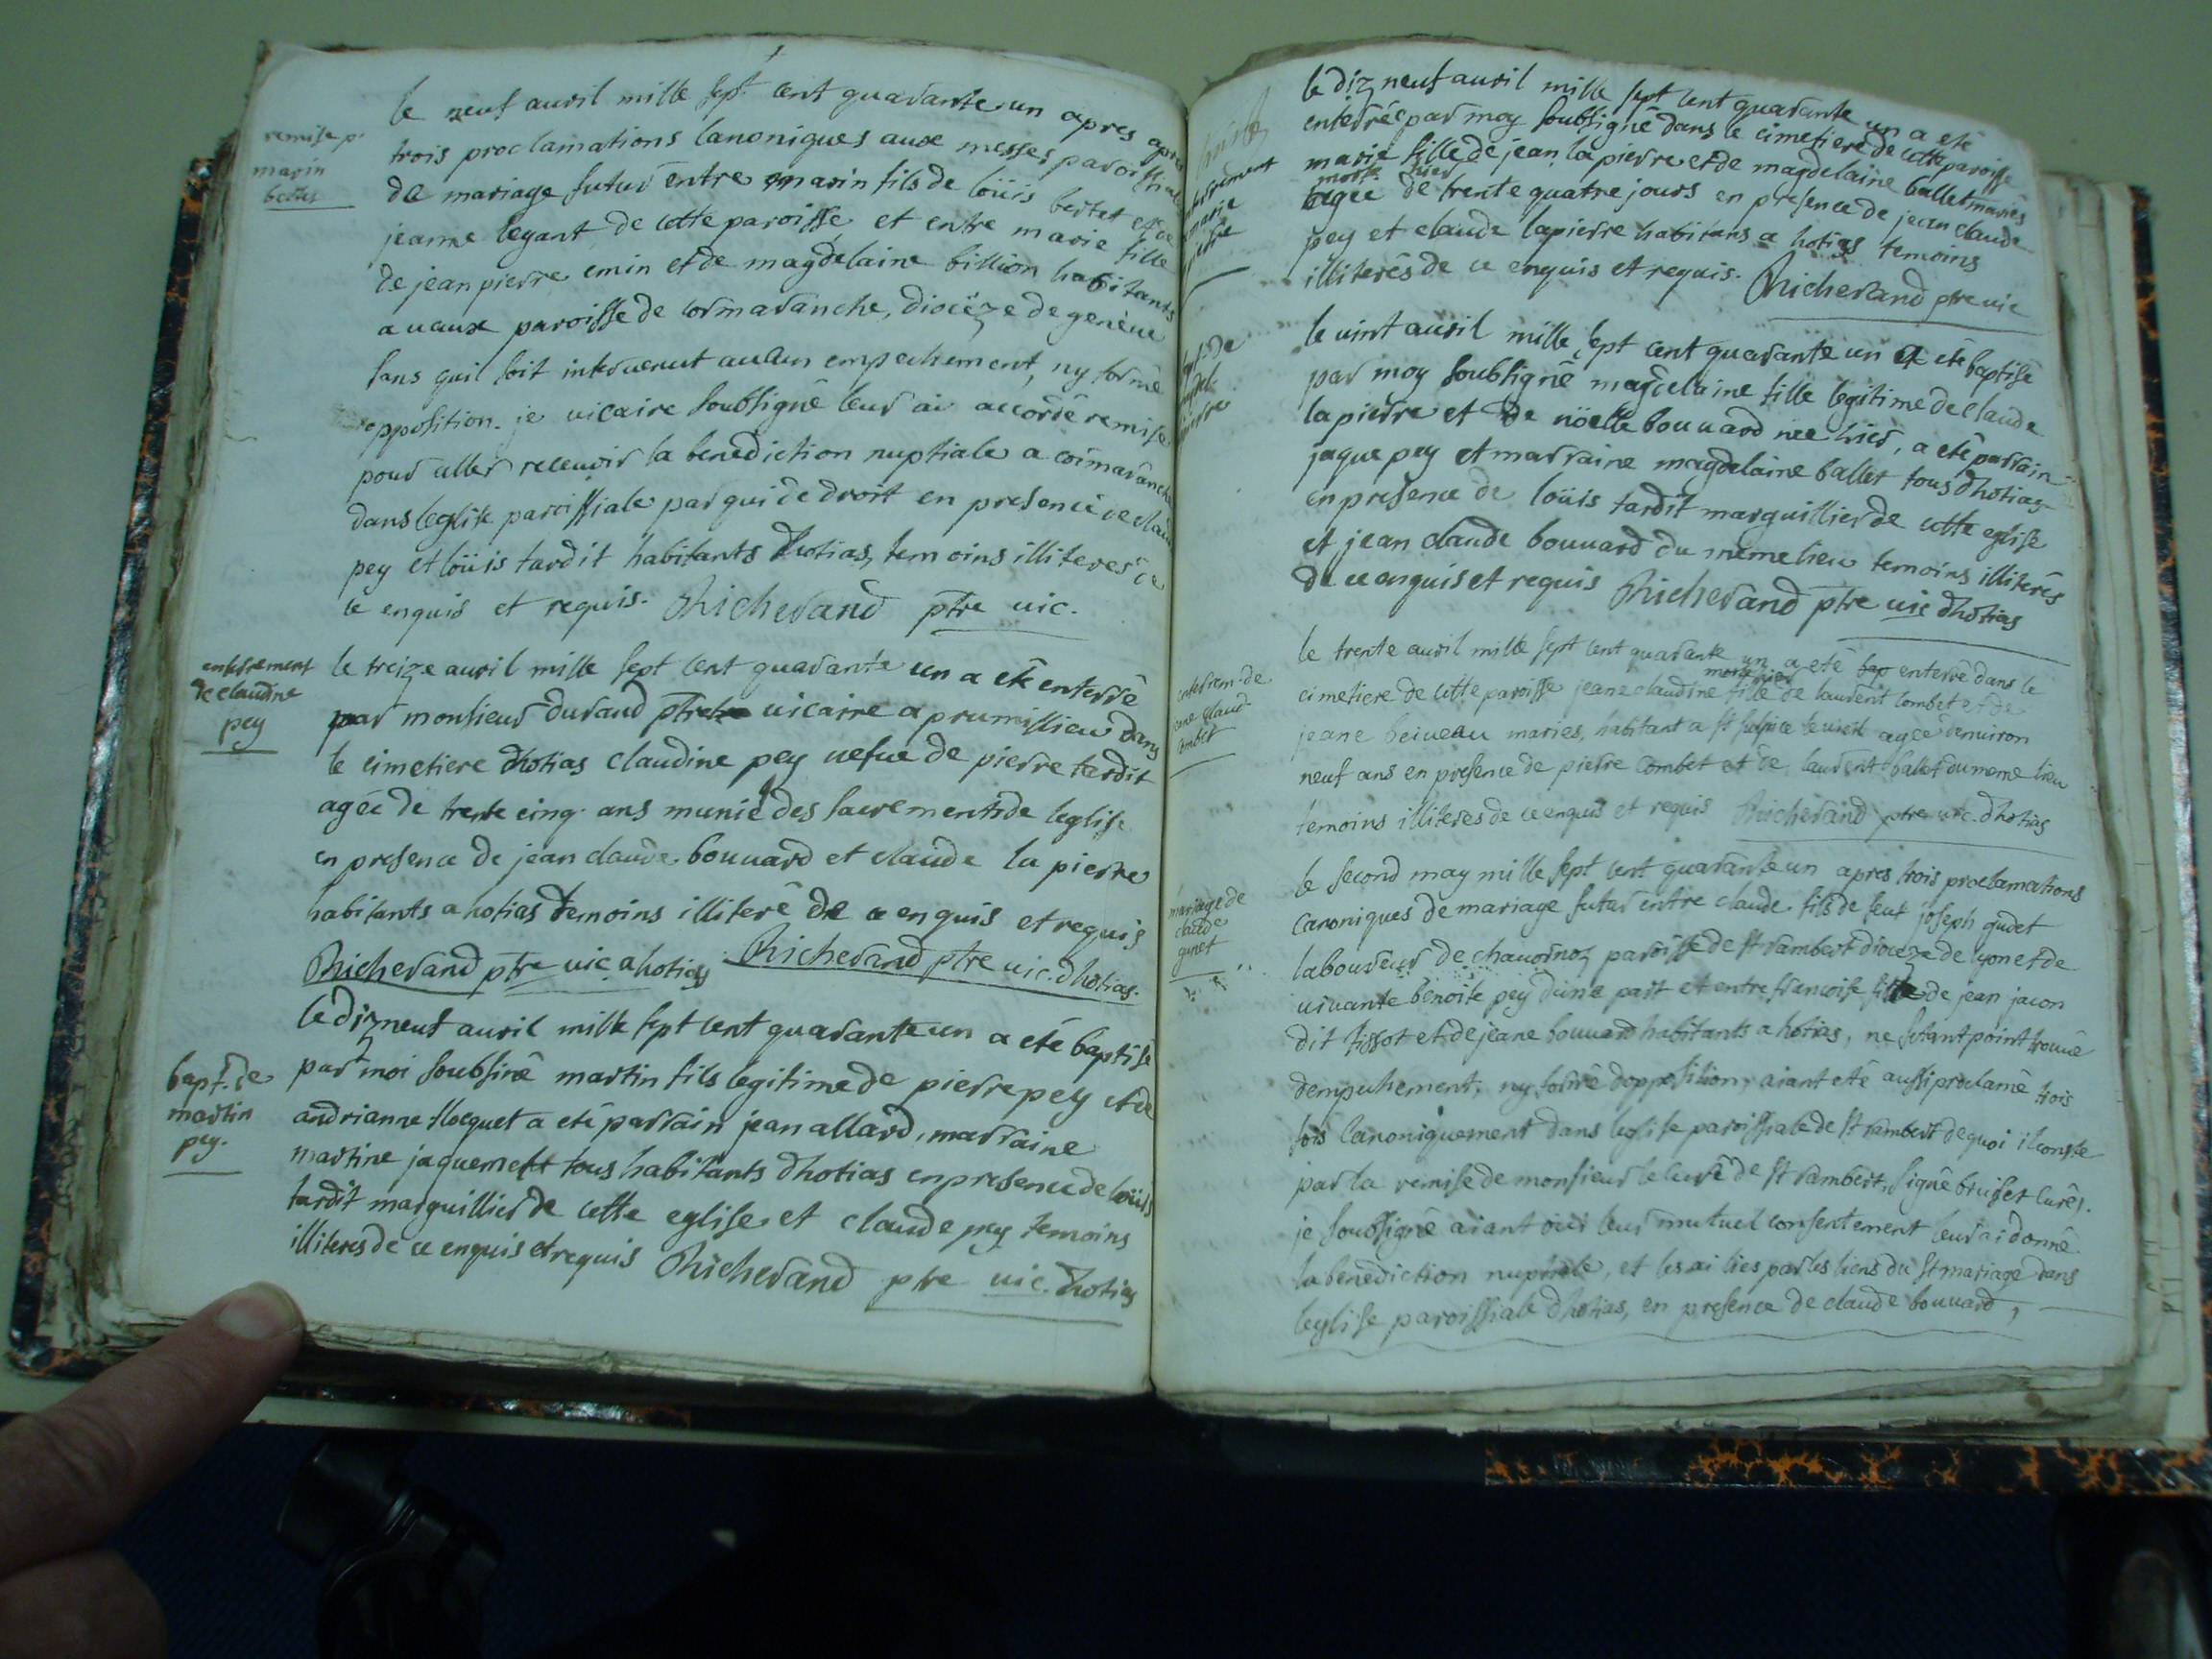 le neuf auril mille sept cent quarante un apres
trois proclamations canoniques aux messes paroissiales
de mariage futur entre marin fils de loüis bertet et de
jeanne leyant de cette paroisse et entre marie fille
de jean pierre emin et de magdelaine billion habitants
a uaux paroisse de cormaranche, diocèze de genêue
sans quil soit interuenut aucun empechement, ny formé
opposition. je uicaire soubsigné leur ai accordé remise
pour aller receuoir la benediction nuptiale a cormaranche
dans leglise paroissiale par qui de droit en presence de claude
pey et loüis tardit habitants dhotias, temoins illiteres de
ce enquis et requis. Richerand ptre uic.
remise p.
marin
bertet
le treize auril mille sept cent quarante un a été enterré
par monsieur durand uicaire a prumillieu dans
le cimetiere dhotias claudine pey uefue de pierre tardit
agée de trente cinq ans munie des sacrements de leglise
en presence de jean claude bouuard et claude la pierre
habitants a hotias temoins illiteré de ce enquis et requis
Richerand ptre uic a hotias Richerand ptre uic. dhotias.
enterrement
de claudine
pey
le dizneuf auril mille sept cent quarante un a eté baptisé
par moi soubsiné martin fils legitime de pierre pey et de
andrianne flocquet a eté parrain jean allard, marraine
martine jaquemet tous habitants dhotias en presence de loüis
tardit marguillier de cette eglise et claude pey temoins
illiteres de ce enquis et requis Richerand ptre uic. dhotias
bapt. de
martin
pey.
le dizneuf auril mille sept cent quarante un a eté
enterrée par moy soubsigné dans le cimetiere de cette paroisse
marie fille de jean la pierre et de magdelaine ballet mariés
morte hier
agée de trente quatre jours en presence de jean claude
pey et claude lapierre habitans a hotias temoins
illiterés de ce enquis et requis. Richerand ptre uic
le uint auril mille sept cent quarante un a eté baptisé
par moy soubsigné magdelaine fille legitime de claude
lapierre et de nöelle bouuard nee hier, a eté parrain
jaque pey et marraine magdelaine ballet tous dhotias
en presence de loüis tardit marguillier de cette eglise
et jean claude bouuard du même lieu temoins illiterés
de ce enquis et requis Richerand ptre uic dhotias
le trente auril mille sept cent quarante un a eté bap enterré dans le
morte hier
cimetiere de cette paroisse jeane claudine fille de laurent combet et de
jeane mariés, habitant a st sulpice agée denuiron
neuf ans en presence de pierre combet et de laurent ballet du meme lieu
temoins illiteres de ce enquis et requis Richerand ptre uic. dhotias
enterrem. de
jeane claud.
combet
le second may mille sept cent quarante un apres trois proclamations
canoniques de mariage futur entre claude fils de feut joseph gudet
laboureur de chauornoz paroisse de st rambert diocèze de lyon et de
uiuante benoite pey dune part et entre francoise fille de jean jacon
dit tissot et de jeane bouuard habitants a hotias, ne setant point trouué
dempechement, ny formé dopposition, aiant eté aussi proclamé trois
fois canoniquement dans leglise paroissiale de st rambert de quoi il conste
par la remise de monsieur le curé de st rambert, signé bruiset curé.
je soussigné aiant oui leur mutuel consentement leur ai donné
la benediction nuptiale, et les ai lies par les liens du st mariage dans
leglise paroissiale dhotias, en presence de claude bouuard,
mariage de
claude